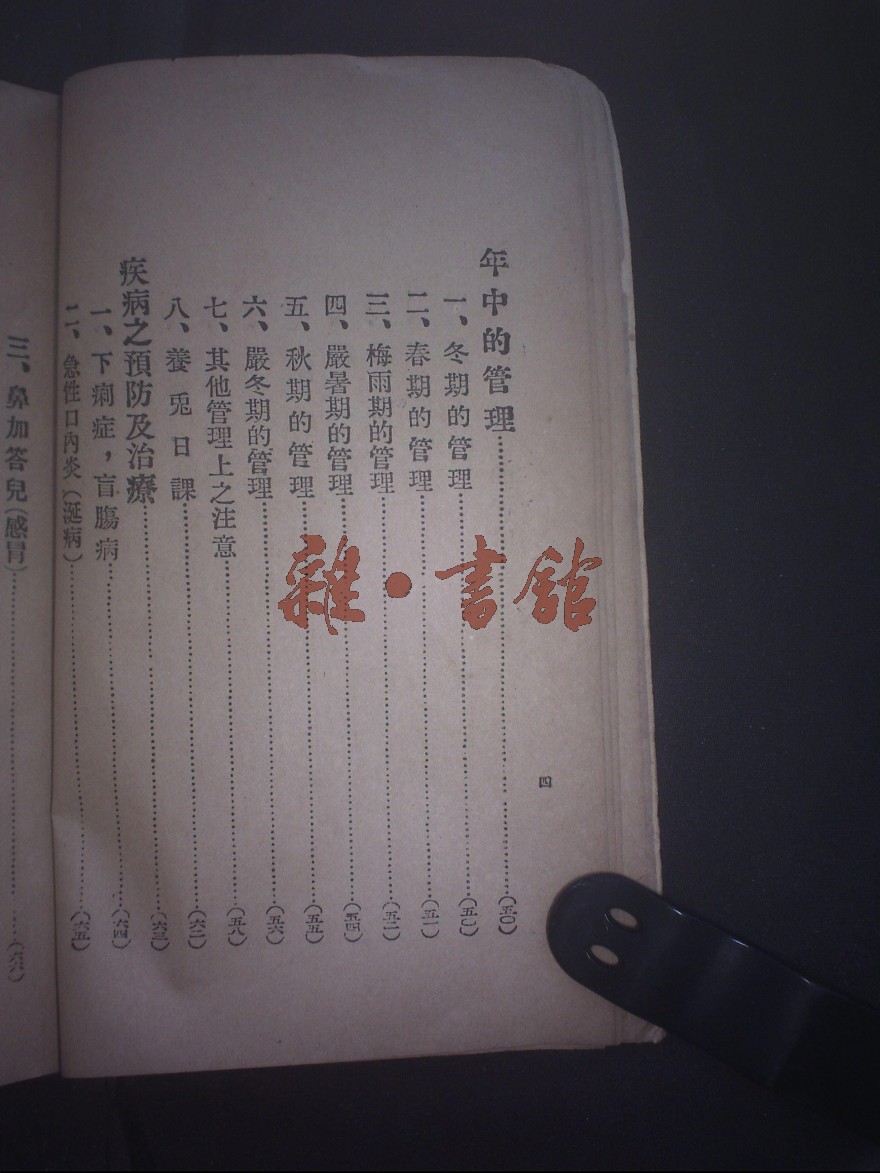 年中的管理………(五〇)
一、冬期的管理………(五〇)
二、春期的管理………(五一)
三、梅雨期的管理………(五二)
四、嚴暑期的管理………(五四)
五、秋期的管理………(五五)
六、嚴冬期的管理………(五六)
七、其他管理上之注意………(五八)
八、養兎日課………(六二)
疾病之預防及治療………(六三)
一、下痢症，盲腸病………(六四)
二、急性口內炎(涎病)………(六五)
四
三、鼻加答兒(感冒)………(六六)
雜·書館